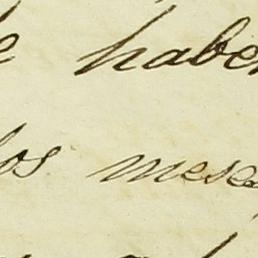 e haber
los mese